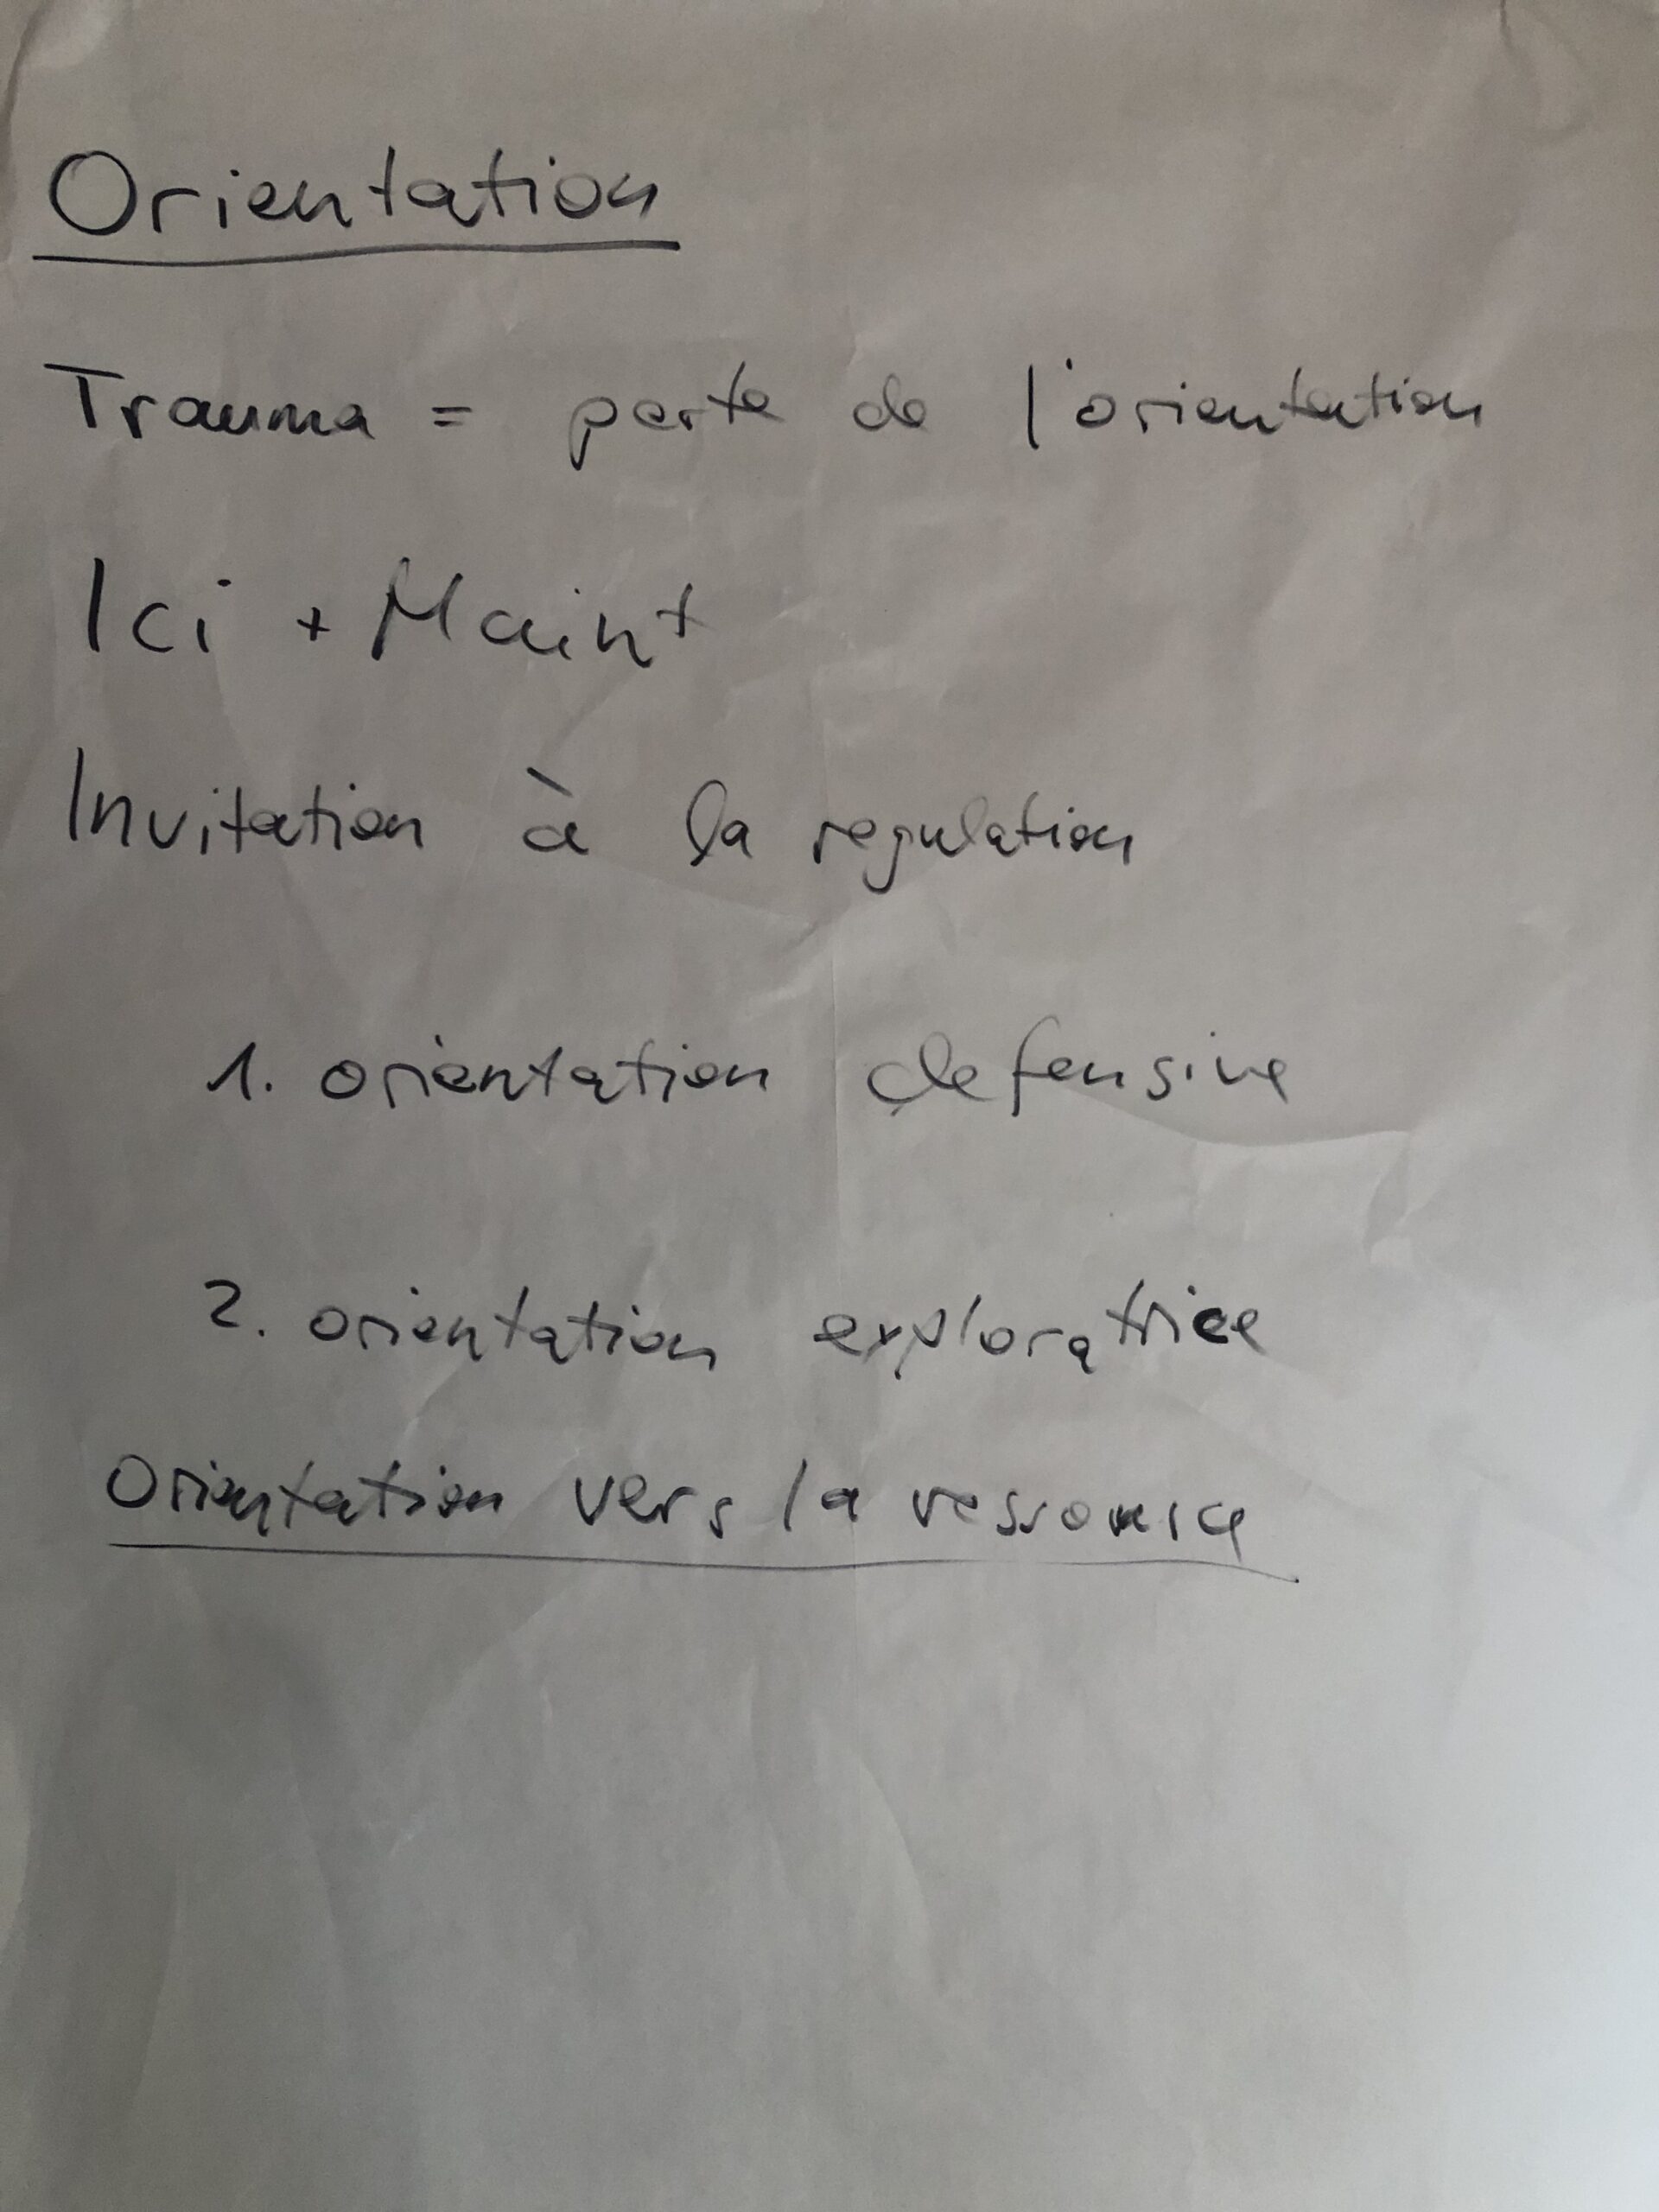 Orientation
Trauma = perte de l'orientation
Ici + Maint
Invitation à la regulation
1. orientation defensive
2. orientation exploratrice
Orientation vers la ressource